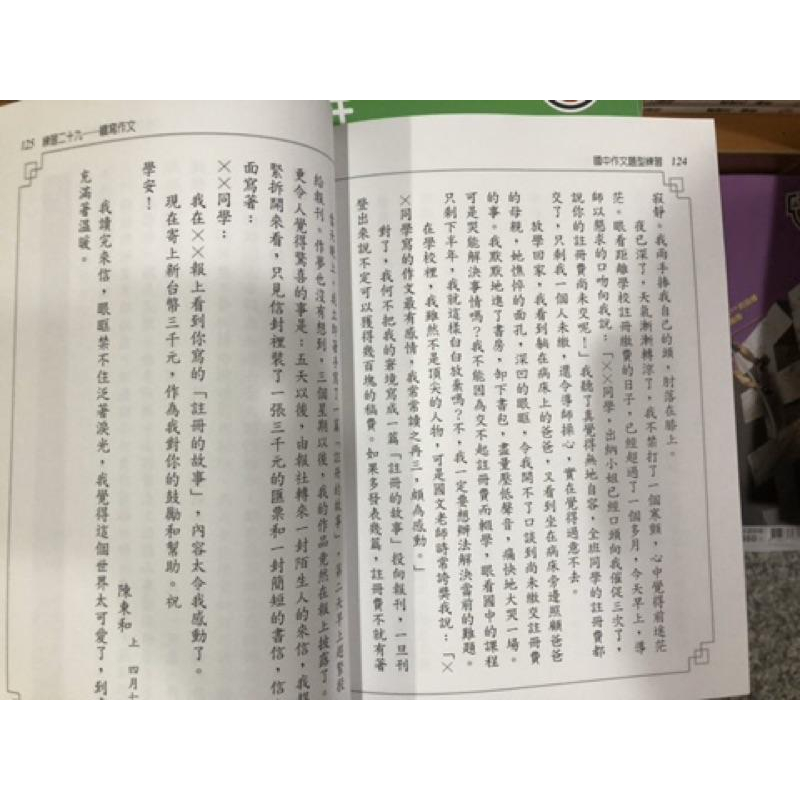 國中作文題型練習 124
寂靜。我兩手捧我自己的頭，肘落在膝上。
夜已深了，天氣漸漸轉涼了，我不禁打了一個寒顫，心中覺得前途茫
茫。眼看距離學校註冊繳費的日子，已經超過了一個多月，今天早上，導
師以懇求的口吻向我說：「××同學，出納小姐已經口頭向我催促三次了，
說你的註冊費尚未交呢！」我聽了真覺得無地自容，全班同學的註冊費都
交了，只剩我一個人未繳，還令導師操心，實在覺得過意不去。
放學回家，我看到躺在病床上的爸爸，又看到坐在病床旁邊照顧爸爸
的母親，她憔悴的面孔，深凹的眼眶，令我開不了口談到尚未繳交註冊費
的事。我默默地進了書房，卸下書包，盡量壓低聲音，痛快地大哭一場。
可是哭能解決事情嗎？我不能因為交不起註冊費而輟學，眼看國中的課程
只剩下半年，我就這樣白白放棄嗎？不，我一定要想辦法解決當前的難題。
在學校裡，我雖然不是頂尖的人物，可是國文老師時常誇獎我說：「×
×同學寫的作文最有感情，我常常讀之再三，頗為感動。」
對了，我何不把我的窘境寫成一篇「註冊的故事」投向報刊，一旦刊
登出來說不定可以獲得幾百塊的稿費。如果多發表幾篇，註冊費不就有著
125 練習二十九——續寫作文
寫了一篇「註冊的故事」，第二天早上趕緊投
給報刊。作夢也沒有想到，三個星期以後，我的作品竟然在報上披露了。
更令人覺得驚喜的事是：五天以後，由報社轉來一封陌生人的來信，我
緊拆開來看，只見信封裡裝了一張三千元的匯票和一封簡短的書信，信
面寫著：
××同學：
我在××報上看到你寫的「註冊的故事」，內容太令我感動了。
現在寄上新台幣三千元，作為我對你的鼓勵和幫助。祝
學安！
陳東和 上 四月
我讀完來信，眼眶禁不住泛著淚光，我覺得這個世界太可愛了，到
充滿著溫暖。